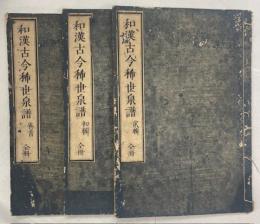 和漢古今稀世泉譜
貳輯
全冊
和漢古今稀世泉譜
初輯
全冊
和漢古今稀世泉譜
全冊